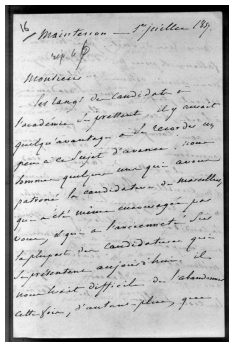 16
Maintenon — 1er juillet 189
rep 6
Monsieur
les rangs de candidats à
l'académie se prettant il y aurait
quelqu'avantage à se recorder un
peu à ce sujet d'avance. nous
sommes quelques uns qui avons
patroné la candidature de Marcellus
qui a été même encouragée par
vous, et qui a l'ancienneté sur
la plupart des candidatures qui
se présentent aujourd'hui. il
nous serait difficile de l'abandonner
cette fois, d'autant plus que